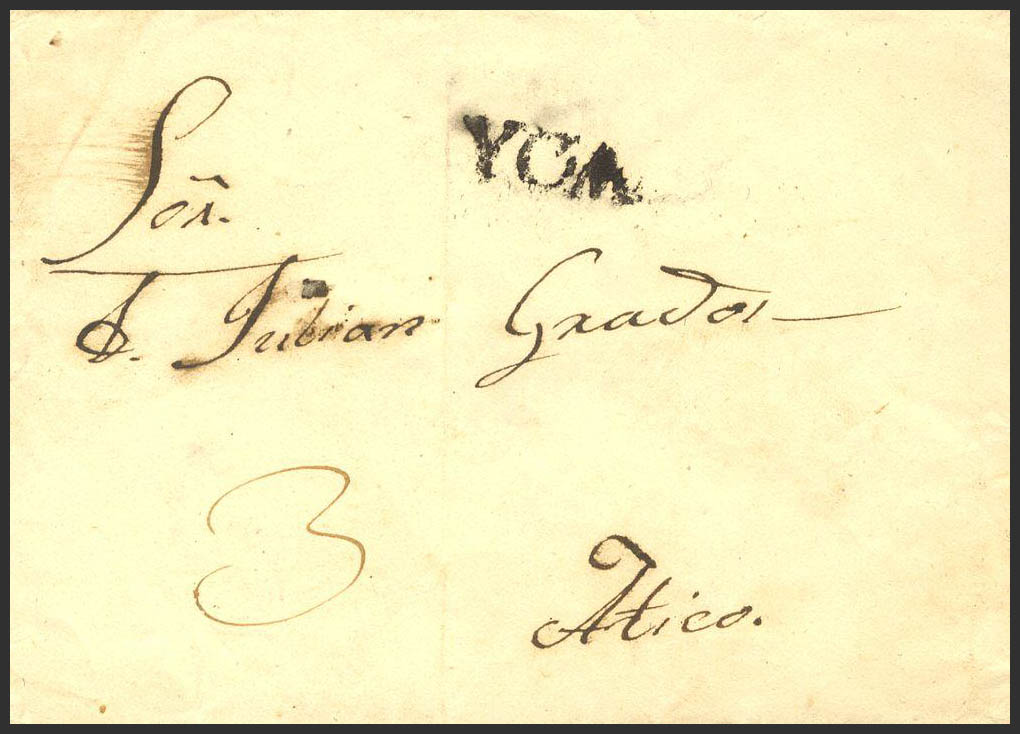 YCA
Sor.
D. Julian Grados
3
Atico.